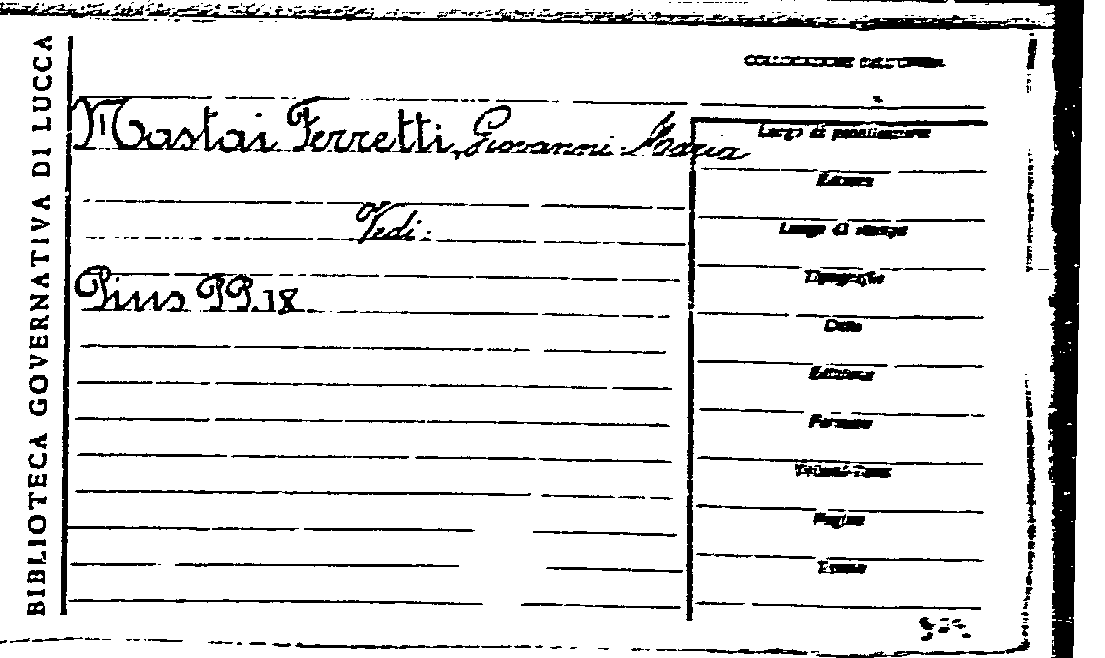 BIBLIOTECA GOVERNATIVA DI LUCCA
COLLOCAZIONE DELL'OPERA
Mastai Ferretti, Giovanni Maria
Vedi:
Pius PP. IX
Luogo di pubblicazione
Editore
Luogo di stampa
Tipografia
Data
Edizione
Formato
Pagine